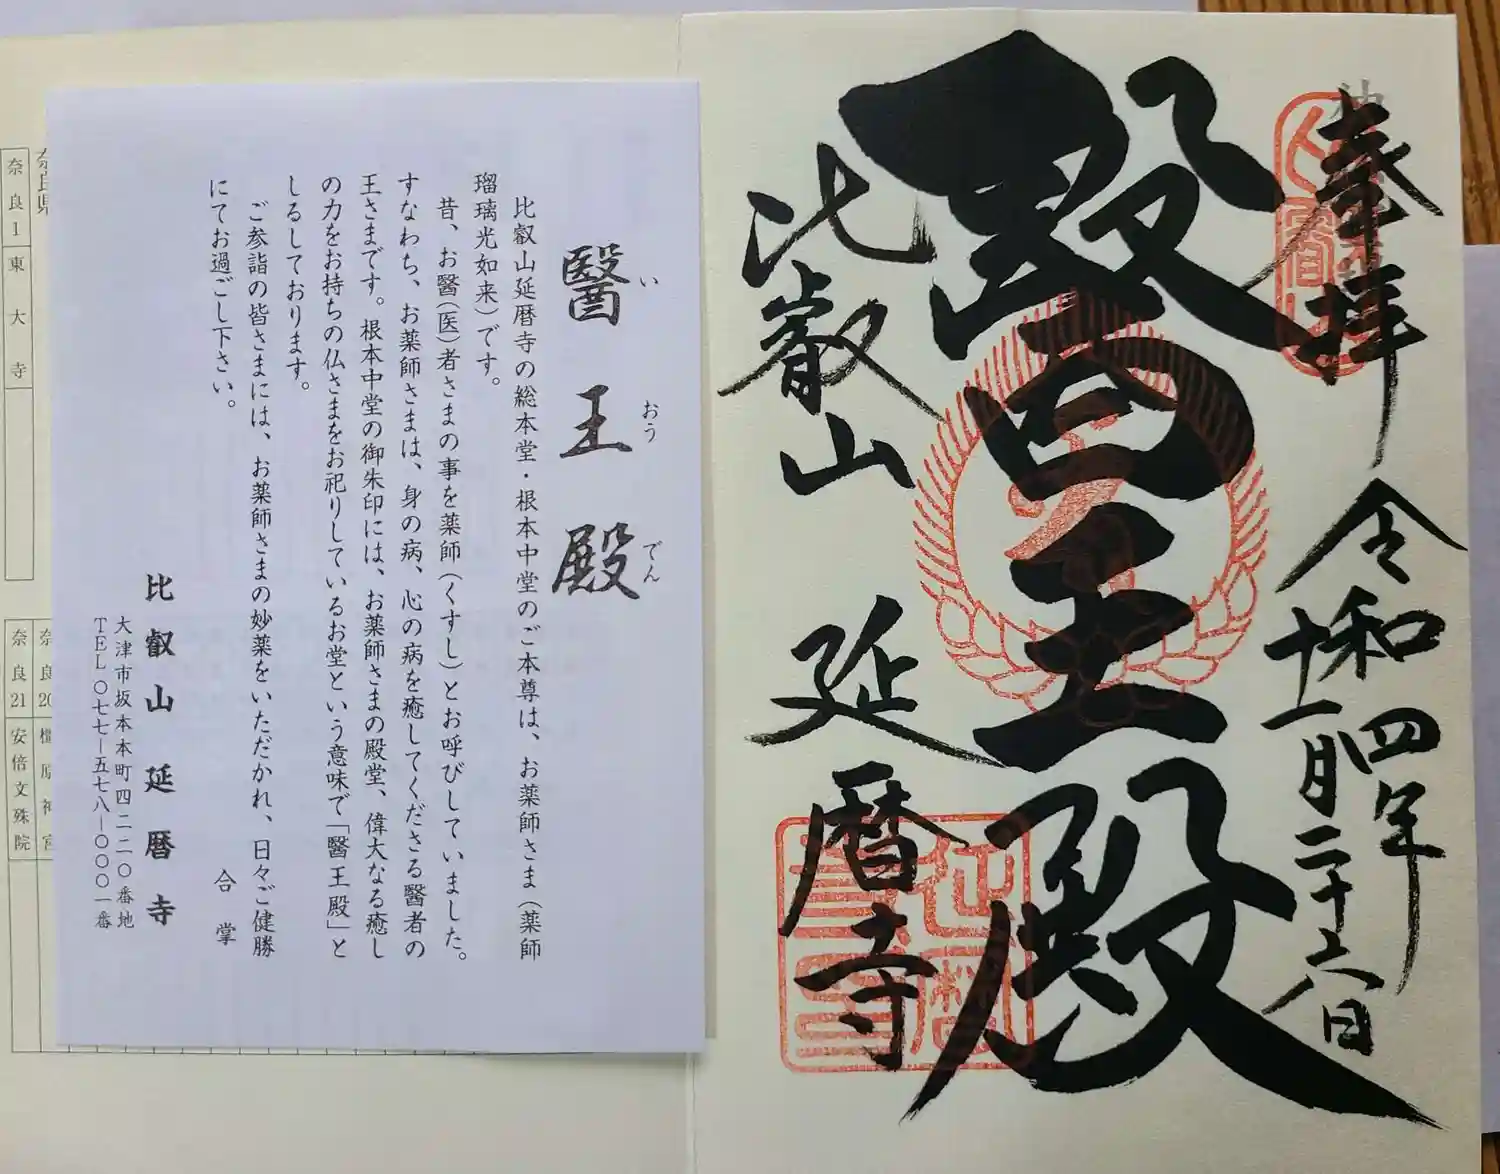 奉拝
令和四年
十一月二十六日
醫王殿
比叡山
延暦寺
醫王殿
い
おう
でん
比叡山延暦寺の総本堂・根本中堂のご本尊は、お薬師さま(薬師
瑠璃光如来)です。
昔、お醫(医)者さまの事を薬師(くすし)とお呼びしていました。
すなわち、お薬師さまは、身の病、心の病を癒してくださる醫者の
王さまです。根本中堂の御朱印には、お薬師さまの殿堂、偉大なる癒し
の力をお持ちの仏さまをお祀りしているお堂という意味で「醫王殿」と
しるしております。
ご参詣の皆さまには、お薬師さまの妙薬をいただかれ、日々ご健勝
にてお過ごし下さい。
合掌
比叡山延暦寺
大津市坂本本町四二二〇番地
TEL〇七七ー五七八ー〇〇〇一番
奈良県
奈良1
東大寺
奈良20
橿原神宮
奈良21
安倍文殊院